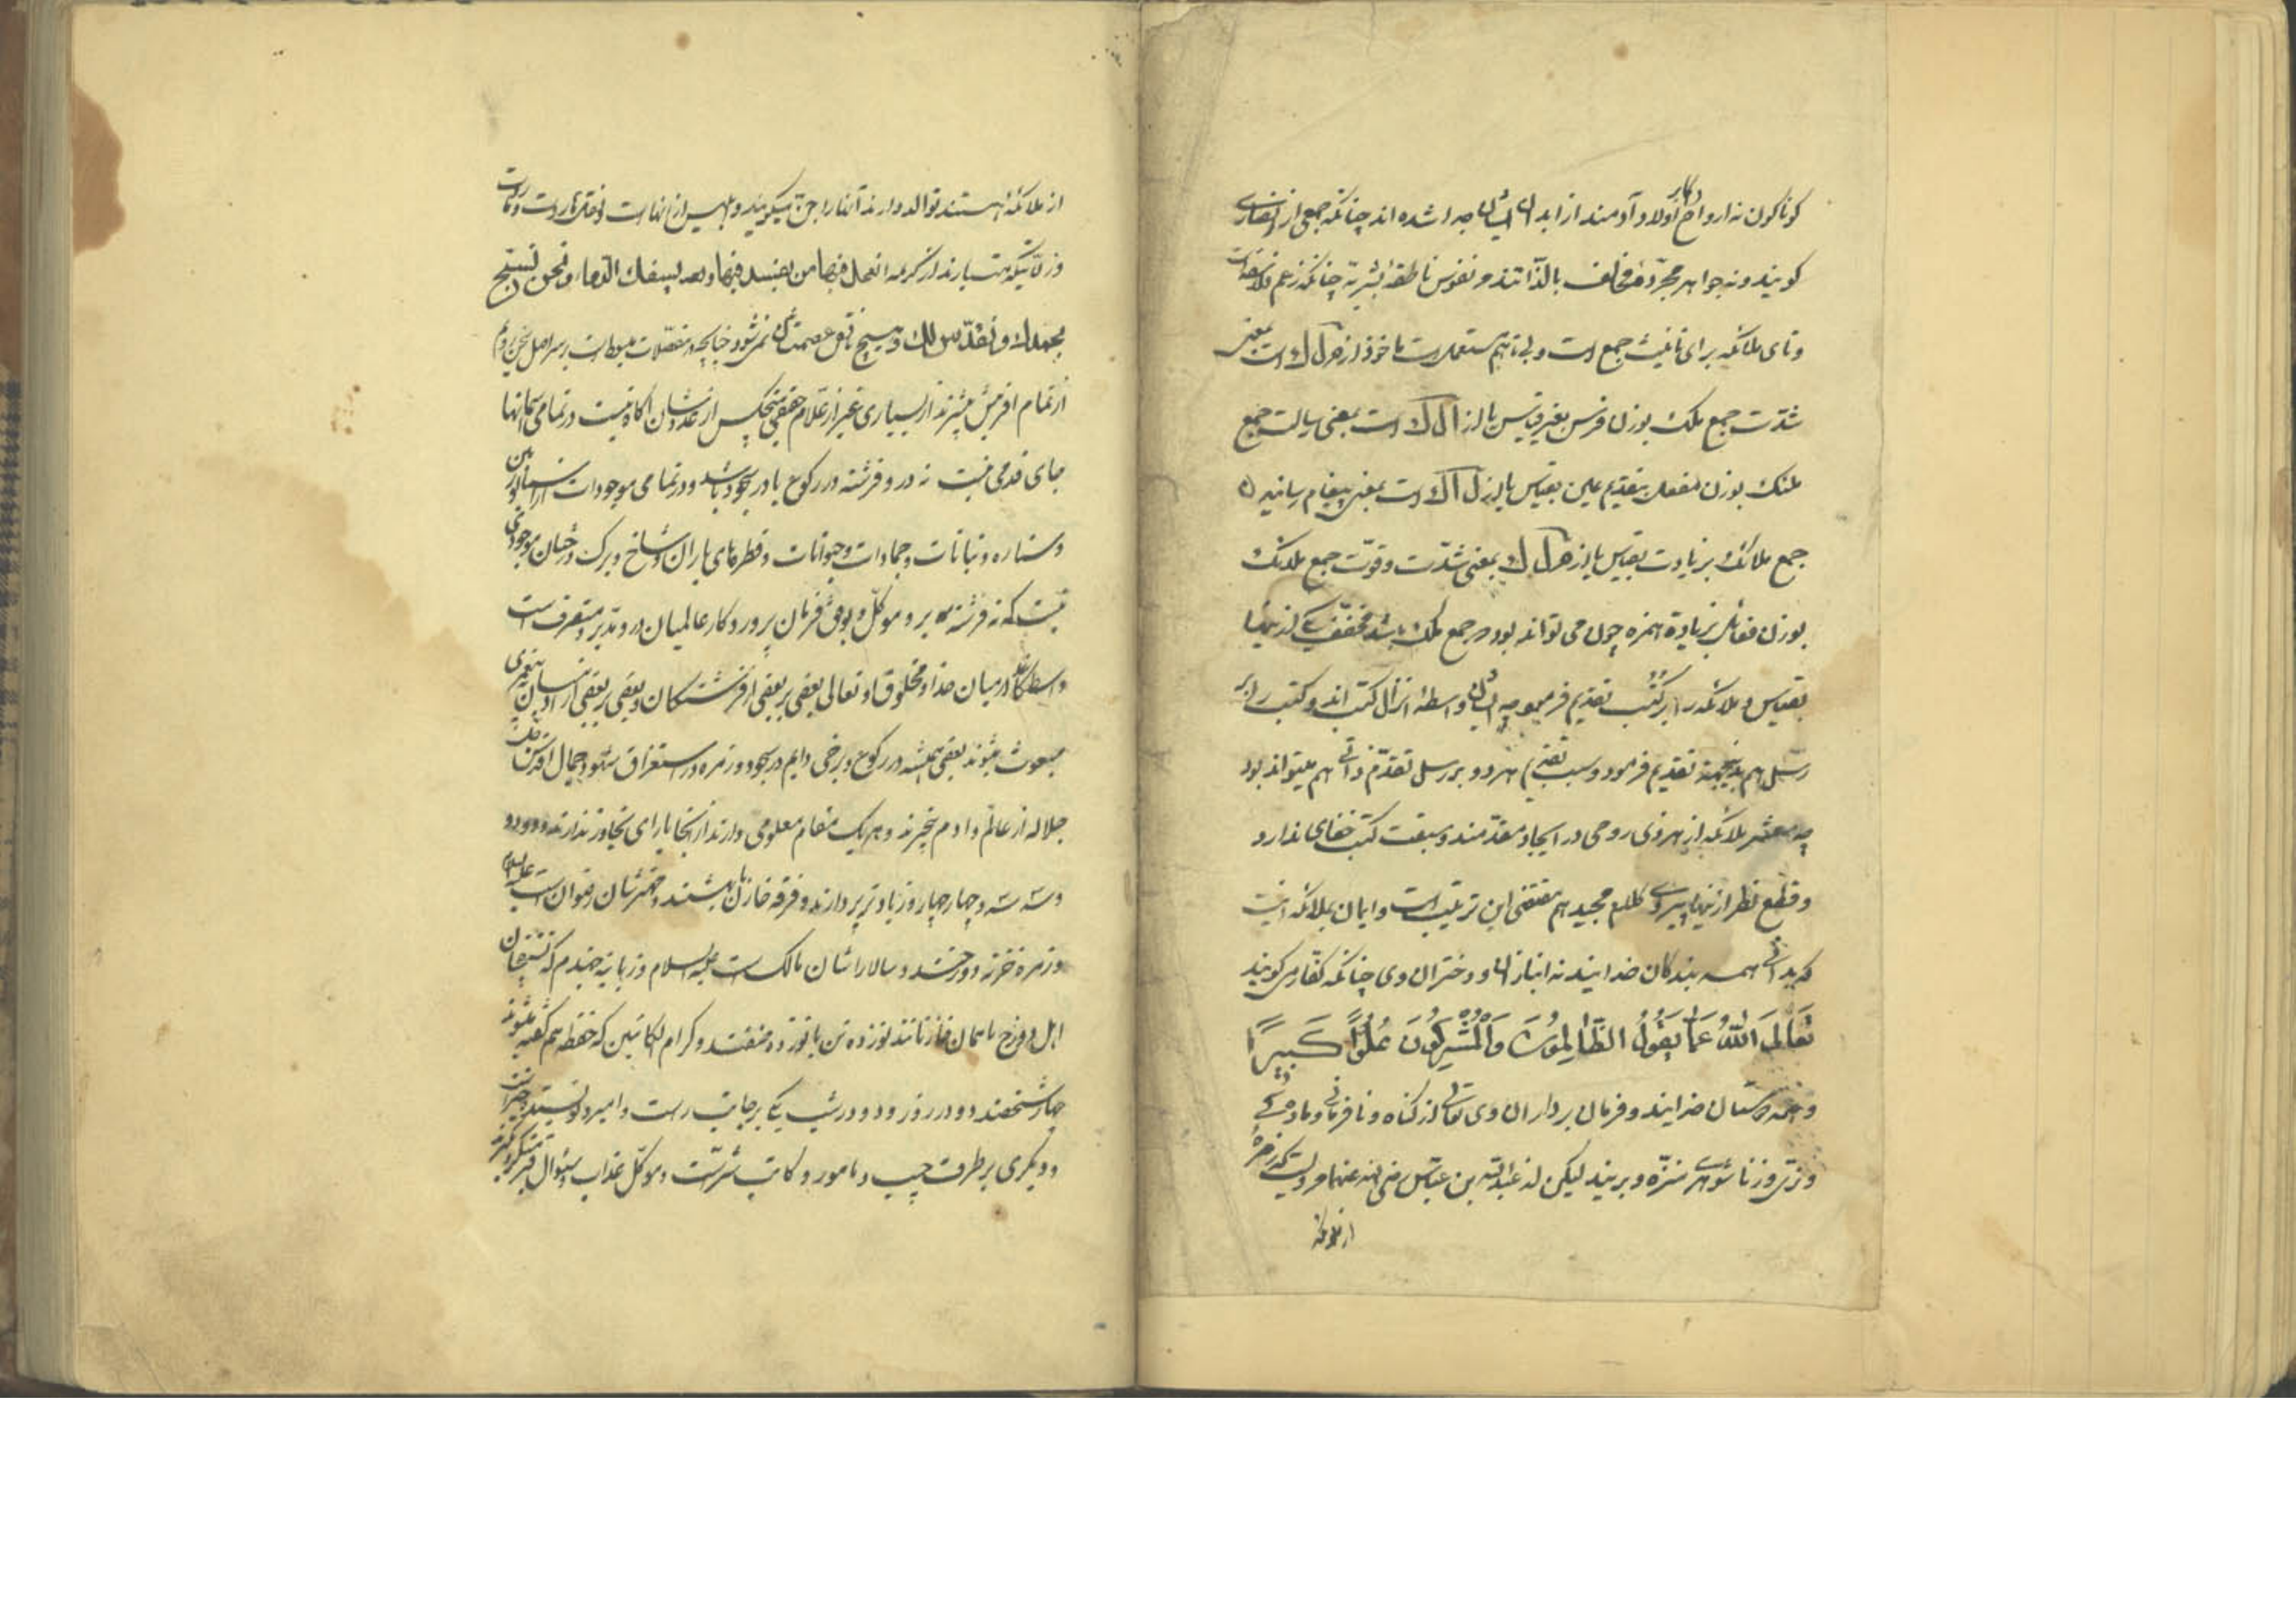 کوناکون نه ارواح اولاد آدمند از ابدان ایشان جدا شده اند چنانکه جمعی از نصاری
کویند و نه جواهر مجرّده مخالف بالذّاتند و نفوس ناطقهٔ بشریه چنانکه زعم فلاسفه است
و تای ملائکه برای تانیث جمع است و بی تا هم مستعملست ماخوذ از م ل ک است بمعنی
شدّت جمع ملک بوزن فرس بغیر قیاس یا از ا ل ک است بمعنی رسالت جمع
ملئک بوزن مفعل بتقدیم عین بقیاس یا از ل ا ک است بمعنی پیغام رسانیدن
جمع ملائک بزیادت بقیاس یا از م ل ک بمعنی شدّت و قوّت جمع ملائک
بوزن فعائل بزیادة همزه چون می تواند بود و جمع ملک باشد مخفّف یکی از اینها
بقیاس و ملائکه را بر کتب تقدیم فرمود چه ایشان واسطه انزال کتب اند و کتب را بر
رسل هم بدینجهة تقدیم فرمود و سبب تقدیم هر دو بر رسل تقدّم ذاتی هم میتواند بود
چه معشر ملائکه از هر ذی روحی در ایجاد مقدّمند و سبقت کتب خفای ندارد
و قطع نظر از اینها پیروی کلام مجید هم مقتضی این ترتیب است و ایمان بملائکه اینست
که بدانی همه بندکان خدایند نه انبازان او و دختران وی چنانکه کفّار می کویند
تَعَالَی اللّٰهُ عَمَّا یَقُولُ الظَّالِمُونَ وَالْمُشْرِکُونَ عُلُوًّا کَبِیرًا
و همه دوستان خدایند و فرمان برداران وی تعالی از کناه و نافرمانی و مادکی
و نری و زناشوهری منزّه و برینند لیکن از عبدالله بن عبّاس رضی الله عنهما مرویست که زمره
از ملائکه
از ملائکه هستند توالد دارند آنها را جنّ میکویند و ابلیس از انهاست و قصّه هاروت و ماروت
و زلّتیکه متبادر از کریمه اتجعل فیها من یفسد فیها و یسفک الدماء و نحن نسبّح
بحمدک و نقدّس لک و هیچ ناقض عصمتشان نمی شود چنانچه در مفصّلات مبسوطست بر سر اصل سخن رویم
از تمام افرینش بیشترند از بسیاری غیر از علّام حقیقی هیچکس از عددشان اکاه نیست در تمامی اسمانها
جای قدمی نیست که درو فرشته در رکوع یا در سجود باشد و در تمامی موجودات از اسمان و زمین
و ستاره و نباتات و جمادات و حیوانات و قطرهای باران و شاخ و برک درختان موجودی
نیست که نه فرشته برو موکّل و بوفق فرمان پروردکار عالمیان درو مدبّر و متصرّف است
واسطکانند درمیان خدا و مخلوق او تعالی بعضی بر بعضی از فرشتکان و بعضی بر بعضی از ادمیان به پیغمبری
مبعوث میشوند بعضی همیشه در رکوع و برخی دایم در سجود و زمره در استغراق شهود جمال اقدس جلّ
جلاله از عالم و ادم بیخبرند و هر یک مقام معلومی دارند از انجا یارای تجاوز ندارند و دو دو
و سه سه و چهار چهار و زیاده پر دارند و فرقه خازنان بهشتند و مهترشان رضوان است علیه السلام
و زمره خزنه دوزخند و سالارشان مالک است علیه السلام و زبانیه جهنم که
اهل دوزخ با خازنانند نوزده تن یا نوزده صنفند و کرام الکاتبین که حفظه هم کفته میشوند
چهار شخصند دو در روز و دو در شب یکی بر جانب راست و امیر و نویسنده خیراتست
و دیکری بر طرف چپ و مامور و کاتب شرّست و موکّل عذاب و سئوال قبر منکر و نکیرند